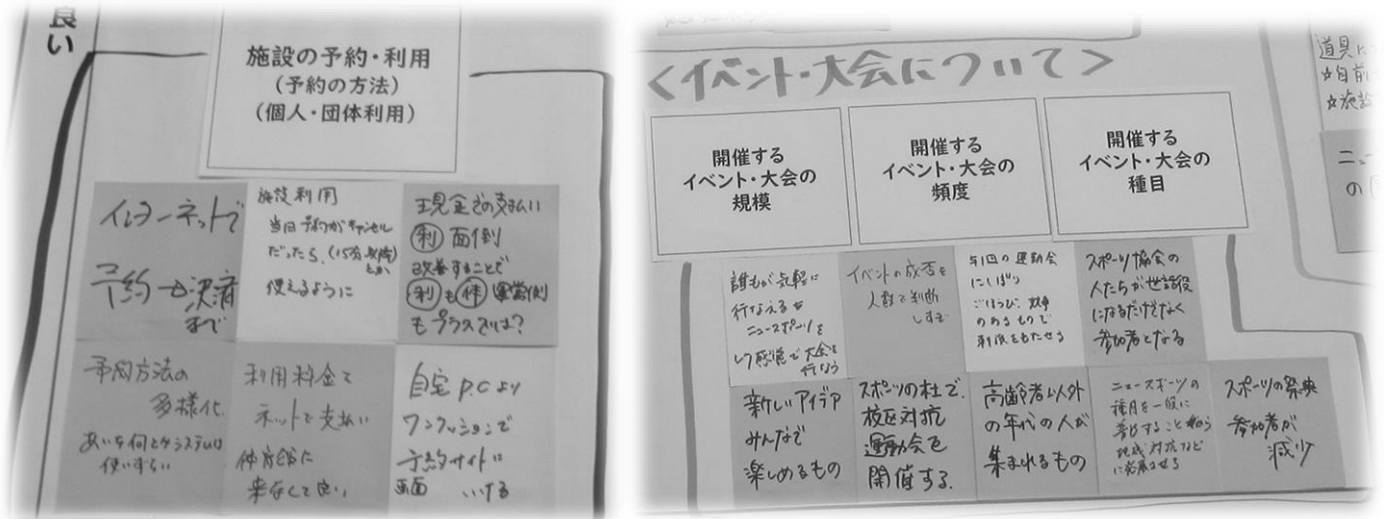 良い
施設の予約・利用
(予約の方法)
(個人・団体利用)
インターネットで
予約→決済
まで
施設利用
当日予約がキャンセル
だったら、(15分以降)
とか
使えるように
現金での支払い
利 面倒
改善することで
利も体運営側
もプラスでは?
予約方法の
多様化
使いずらい
利用料金を
ネットで支払い
体育館に
来なくて良い
自宅P.Cより
ワンクッションで
予約サイドに
画面 いける
<イベント・大会について>
開催する
イベント・大会の
規模
開催する
イベント・大会の
頻度
開催する
イベント・大会の
種目
誰もが気軽に
行なえる
ニュースポーツを
感覚で大会を
行なう
イベントの成否を
人数で判断
しすぎ
年1回の運動会
にしぼり
ごほうび、
のあるもので
をもたせる
スポーツ協会の
人たちが世話役
になるだけでなく
参加者となる
新しいアイデア
みんなで
楽しめるもの
スポーツの杜で、
校区対抗
運動会を
開催する。
高齢者以外
の年代の人が
集まれるもの
ニュースポーツの
種目を一般に
普及すること
地域対抗など
に発展させる
スポーツの祭典
参加者が
減少
道具に
☆自前
☆施設
ニュー
の